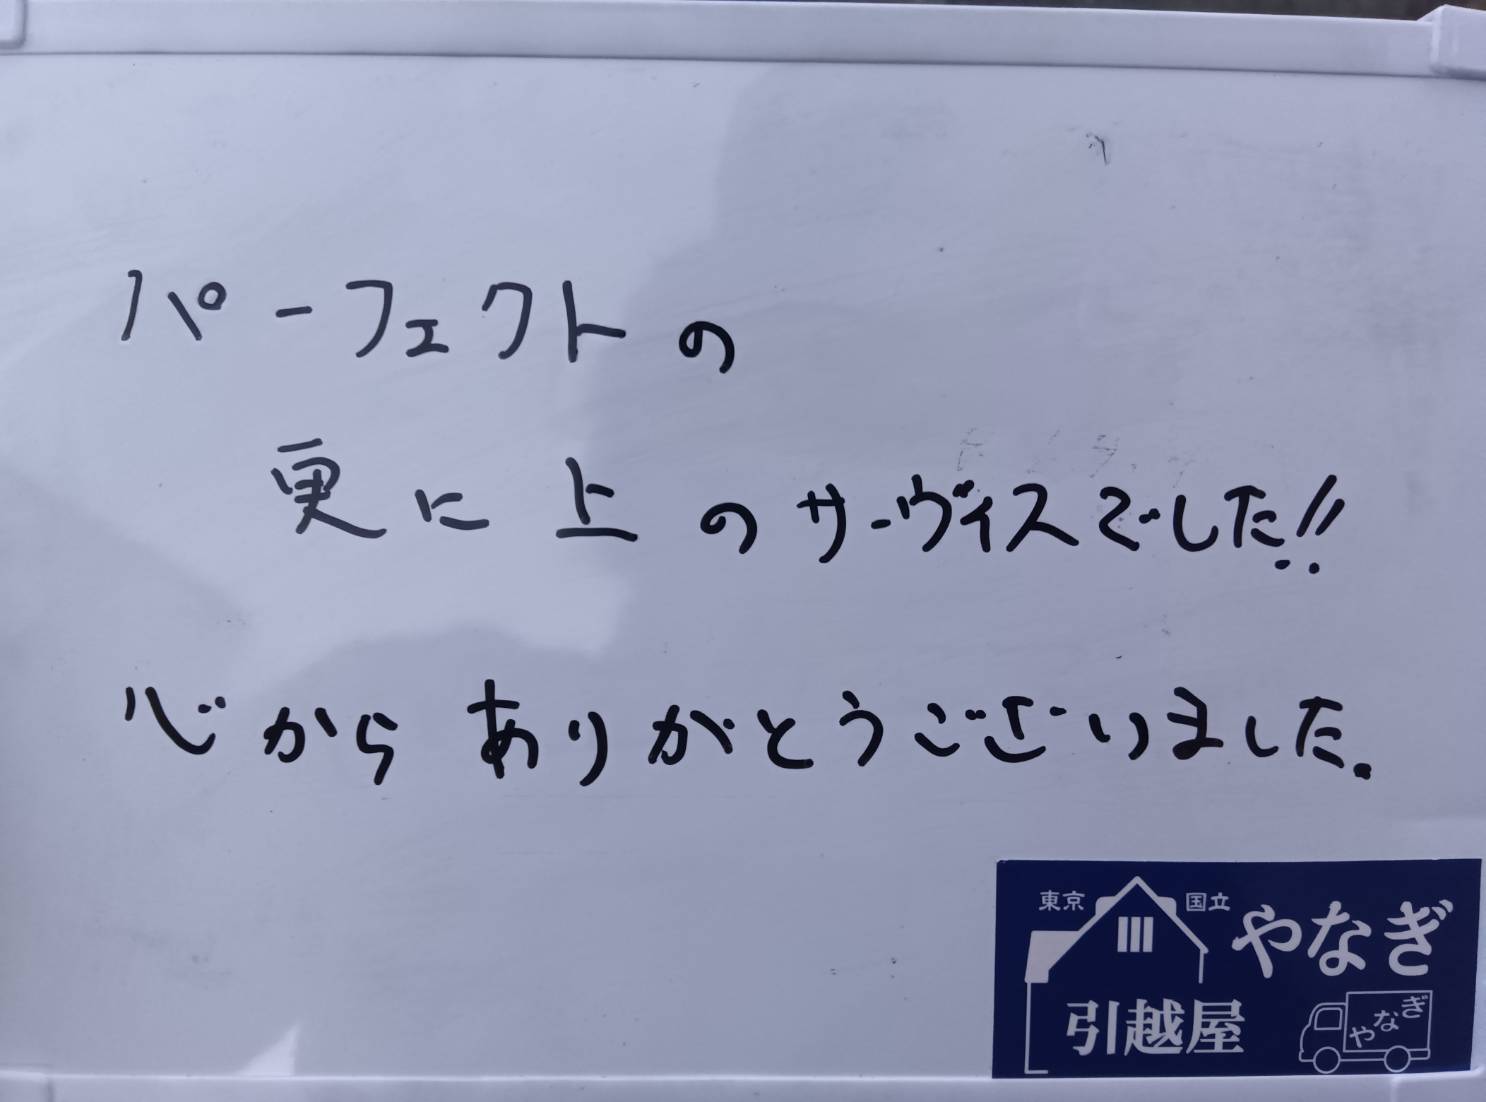 パーフェクトの
更に上のサーヴィスでした!!
心からありがとうございました.
東京 国立 やなぎ
引越屋
やなぎ